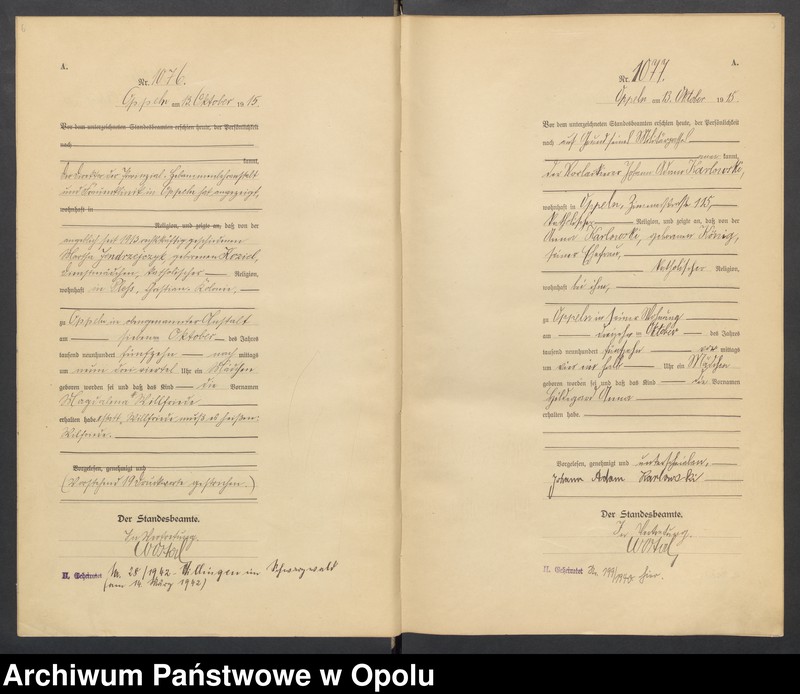 A.
Nr. 1076.
Oppeln am 13. Oktober 1915.
Vor dem unterzeichneten Standesbeamten erschien heute, der Persönlichkeit
nach
kannt,
Der Direktor der Provinzial-Hebammenlehranstalt
und Frauenklinik in Oppeln hat angezeigt,
wohnhaft in
Religion, und zeigte an, daß von der
angeblich seit 1913 rechtskräftig geschiedenen
Martha Jendrzejczyk, geborenen Koziol,
Dienstmädchen, katholischer Religion,
wohnhaft in Kolonie,
zu Oppeln in obengenannter Anstalt
am siebenten Oktober des Jahres
tausend neunhundert fünfzehn nachmittags
um neun drei viertel Uhr ein Mädchen
geboren worden sei und daß das Kind die Vornamen
Magdalena Willfriede
erhalten habe. Statt „Willfriede muß es heißen:
Wilfriede.
Vorgelesen, genehmigt und
(Vorstehend 19 Druckworte gestrichen.)
Der Standesbeamte.
In Vertretung.
II. Geheiratet Nr. 28/1942 - Villingen im Schwarzwald
(am 14. März 1942)
A.
Nr. 1077.
Oppeln am 13. Oktober 1915.
Vor dem unterzeichneten Standesbeamten erschien heute, der Persönlichkeit
nach auf Grund seines Militärpasses
kannt,
der Johann Adam Karlowski,
wohnhaft in Oppeln, 115,
katholischer Religion, und zeigte an, daß von der
Anna Karlowski, geborenen König,
seiner Ehefrau,
katholischer Religion,
wohnhaft bei ihm,
zu Oppeln in seiner Wohnung
am Oktober des Jahres
tausend neunhundert fünfzehn vormittags
um ein halb Uhr ein Mädchen
geboren worden sei und daß das Kind die Vornamen
Hildegard Anna
erhalten habe.
Vorgelesen, genehmigt und unterschrieben.
Johann Adam Karlowski
Der Standesbeamte.
In Vertretung.
II. Geheiratet Nr. hier.
Archiwum Państwowe w Opolu